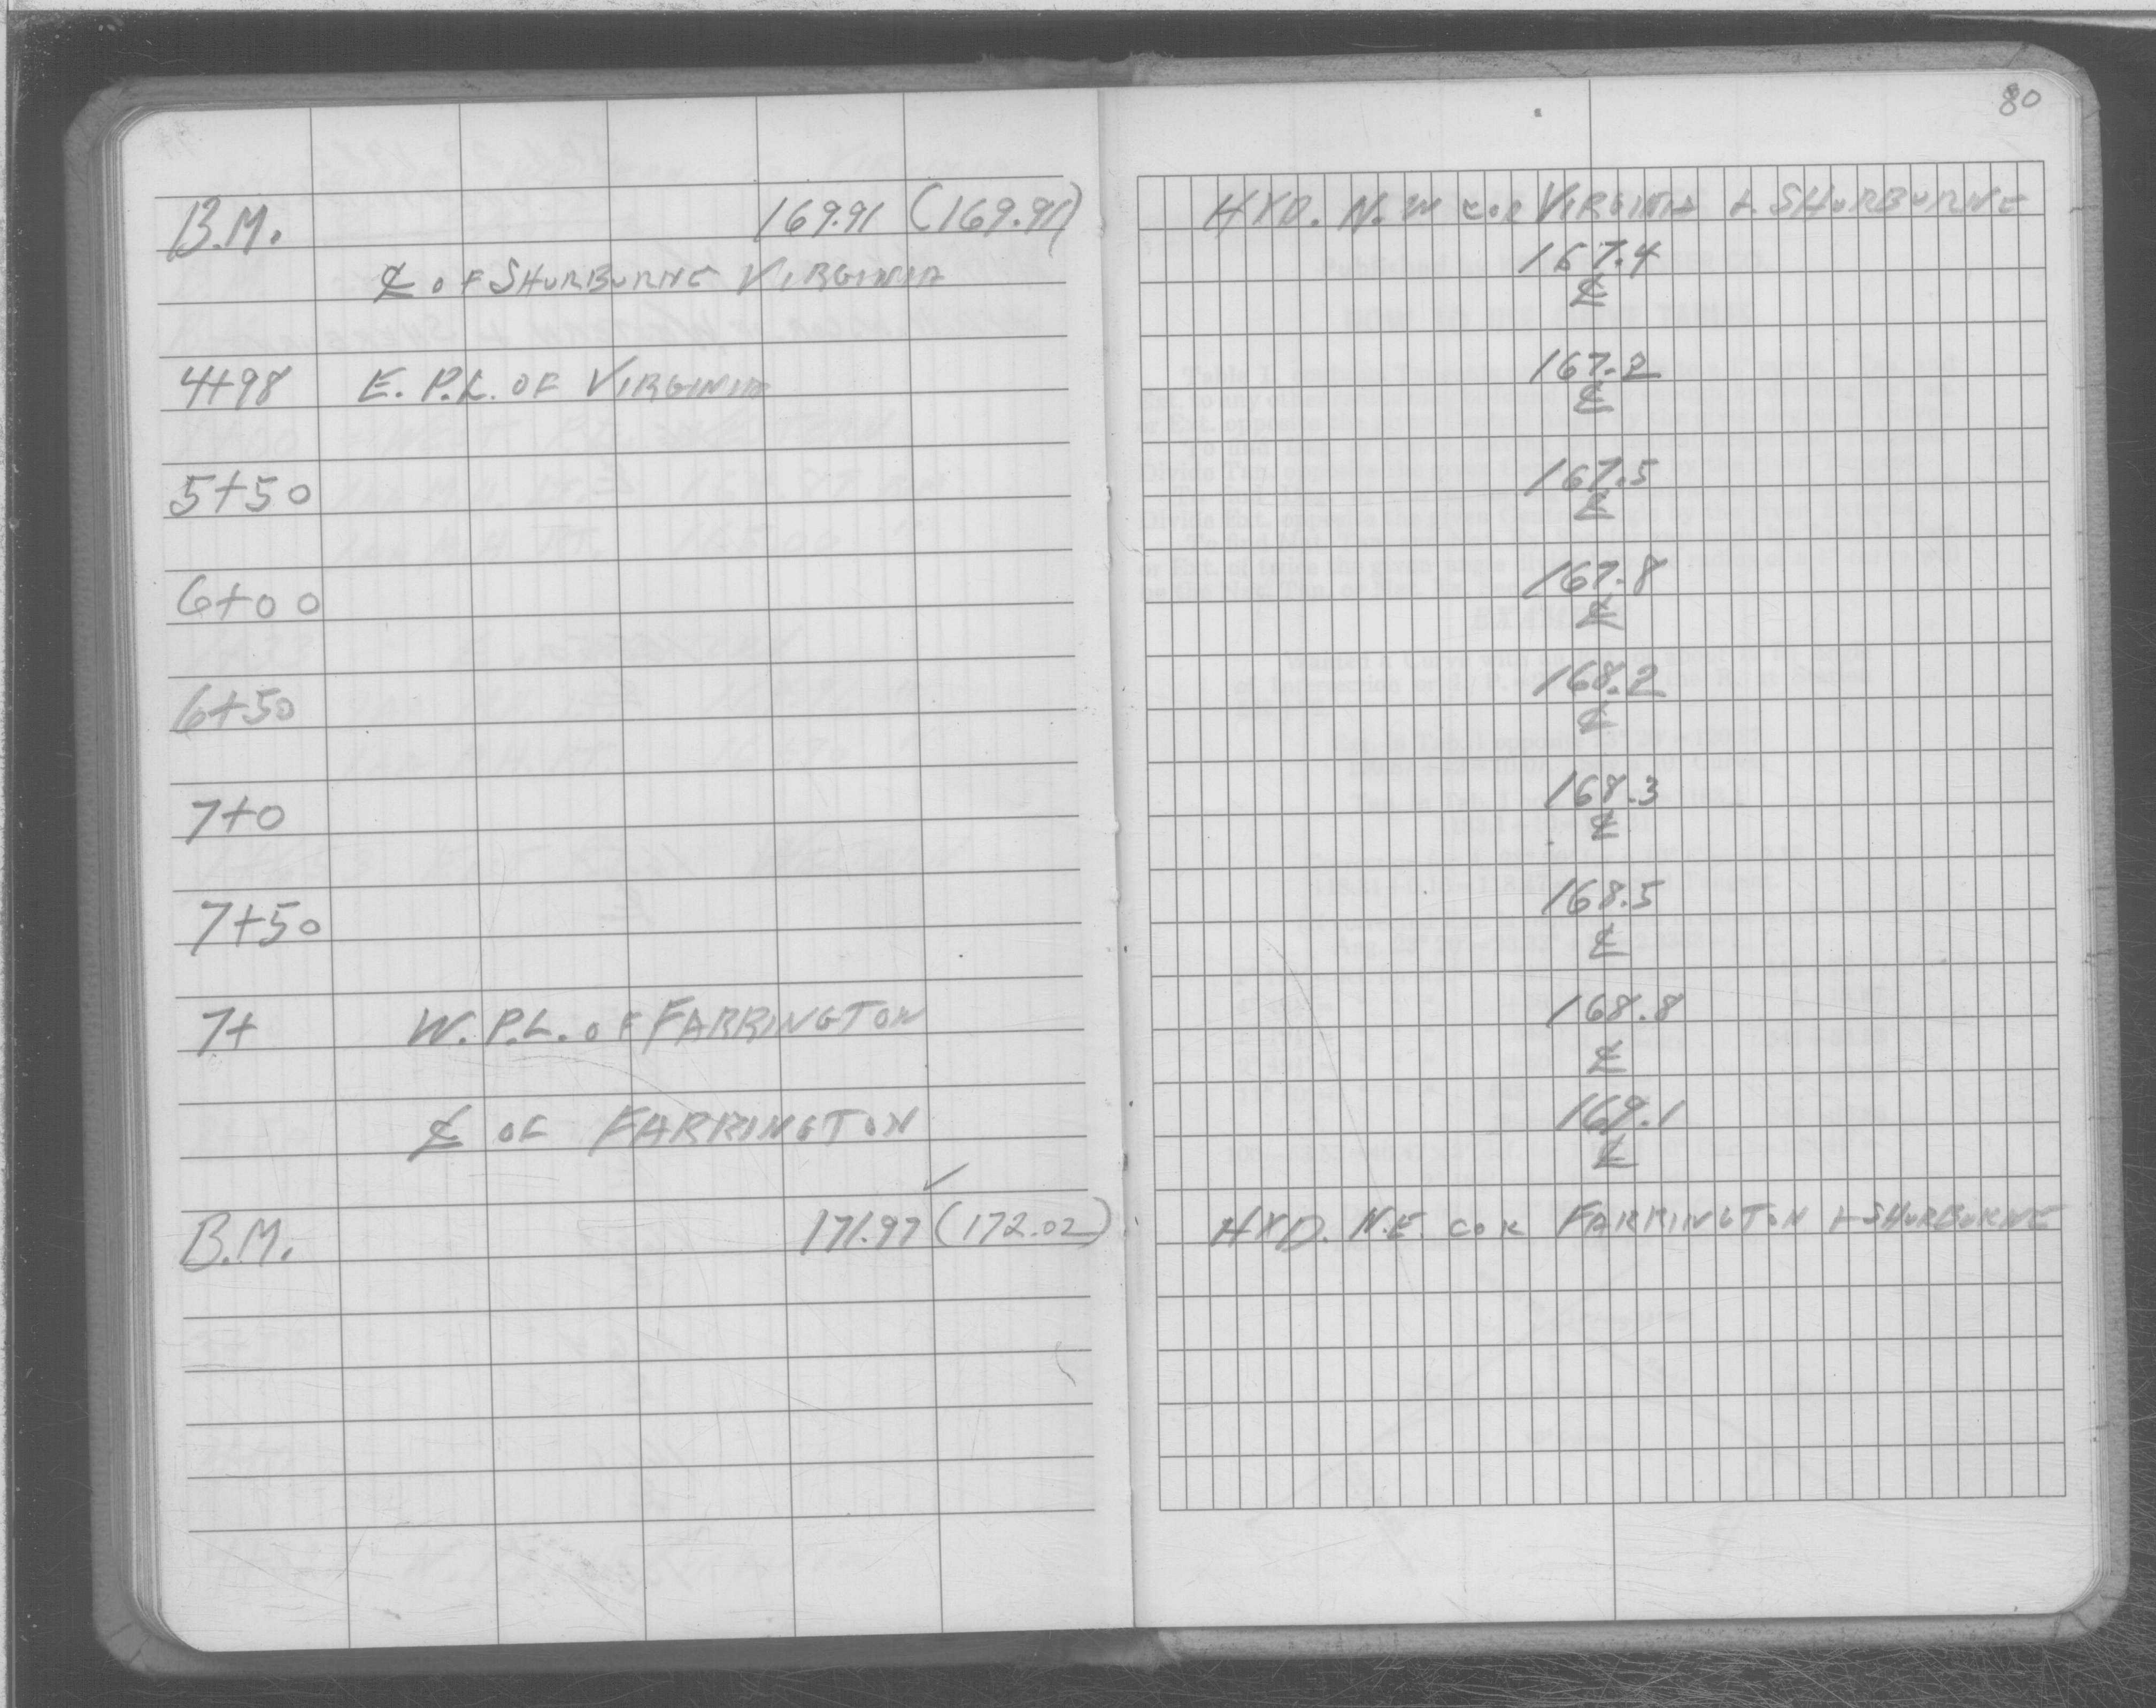 80
B.M. 169.91 (169.91) HYD. N.W COR VIRGINIA & SHURBURNE
℄ OF SHURBURNE VIRGINIA 167.4
℄
4+98 E. P.L. OF VIRGINIA 167.2
℄
5+50 167.5
℄
6+00 167.8
℄
6+50 168.2
℄
7+0 168.3
℄
7+50 168.5
℄
7+ W. P.L. OF FARRINGTON 168.8
℄
℄ OF FARRINGTON 169.1
℄
B.M. 171.97 (172.02) HYD. N.E. COR FARRINGTON & SHURBURNE